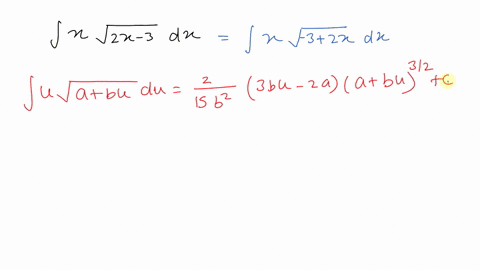 ∫ x √(2x-3) dx = ∫ x √(-3+2x) dx
∫ u √(a+bu) du = 2/(15b²) (3bu - 2a) (a+bu)^(3/2) + C